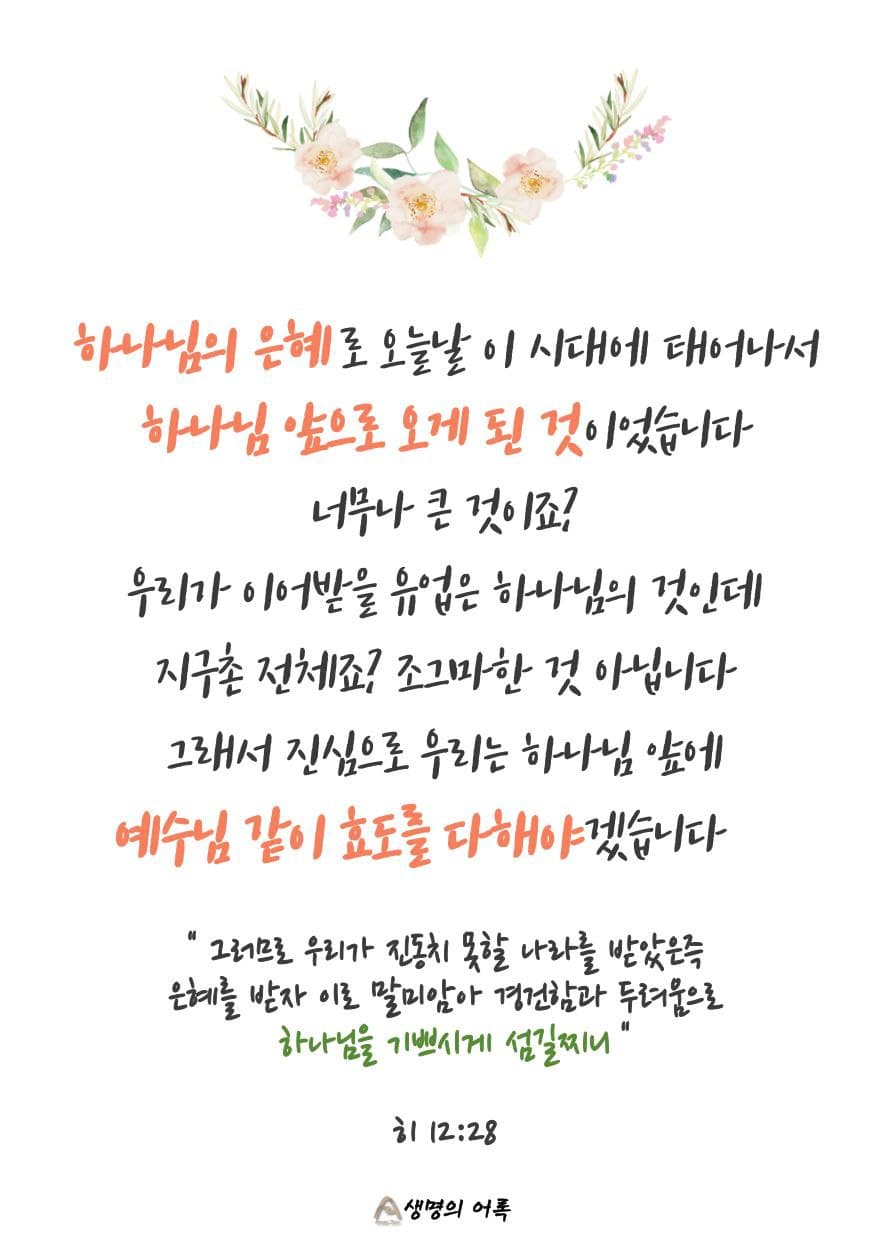 하나님의 은혜로 오늘날 이 시대에 태어나서
하나님 앞으로 오게 된 것이었습니다
너무나 큰 것이죠?
우리가 이어받을 유업은 하나님의 것인데
지구촌 전체죠? 조그마한 것 아닙니다
그래서 진심으로 우리는 하나님 앞에
예수님 같이 효도를 다해야겠습니다
" 그러므로 우리가 진동치 못할 나라를 받았은즉
은혜를 받자 이로 말미암아 경건함과 두려움으로
하나님을 기쁘시게 섬길찌니 "
히 12:28
생명의 어록